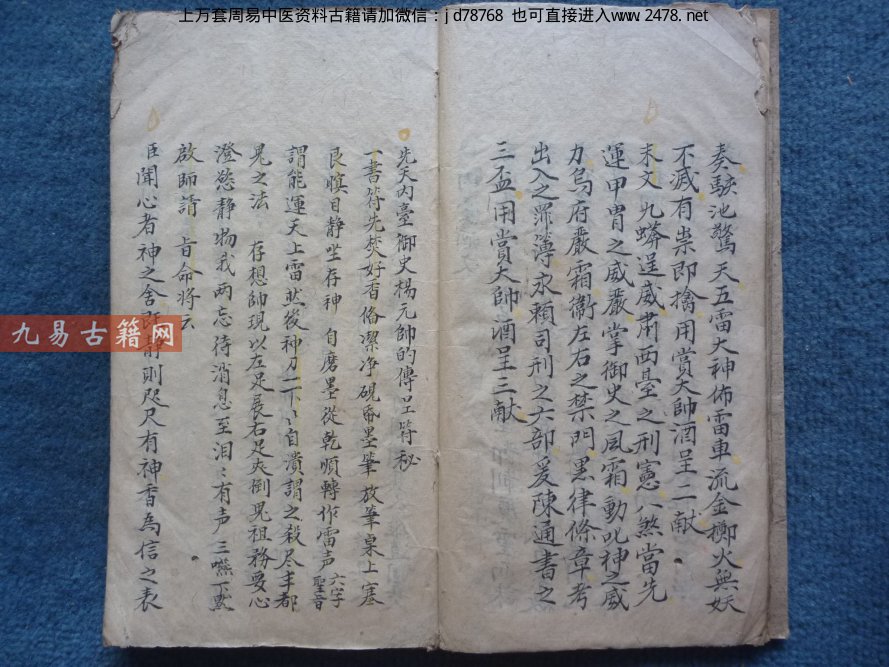 上万套周易中医资料古籍请加微信：jd78768 也可直接进入www.2478.net
奏駛池驚天五雷大神佈雷車流金擲火無妖
不滅有祟即擒用賞大帥酒呈二献
末文九蟒逞威肅西臺之刑憲八煞當先
運甲冑之威嚴掌御史之風霜動叱神之威
力烏府嚴霜衛左右之禁門黑律條章考
出入之罪薄永賴司刑之六部爰陳通書之
三盃用賞大帥酒呈三献
先天内臺御史楊元帥的傳呈符秘
一書符先焚好香俻潔净硯氷墨筆放筆桌上塞
艮瞋目静坐存神自磨墨從乾順轉作雷声六字聖音
謂能運天上雷然後神刀一下丶自潰謂之殺尽丰都
鬼之法 存想師現以左足展右足夾倒鬼祖務要心
澄慾静物我两忘待消息至泪〻有声三嚥下黙
啟師請旨命将云
臣聞心者神之舍既静則咫尺有神香為信之表
九易古籍网